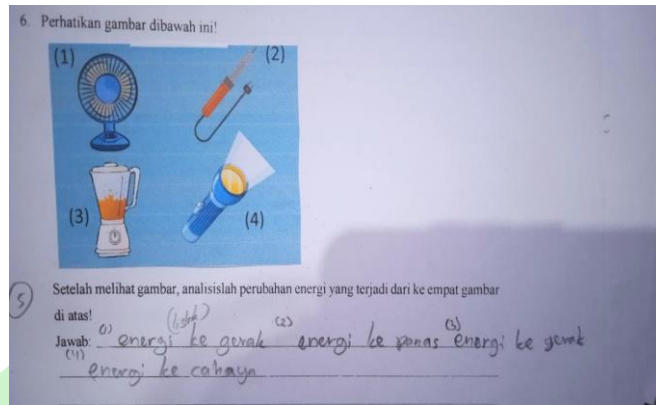 6. Perhatikan gambar dibawah ini!
(1) (2)
(3) (4)
5
Setelah melihat gambar, analisislah perubahan energi yang terjadi dari ke empat gambar
di atas!
(listrik)
Jawab: (1) energi ke gerak (2) energi ke panas (3) energi ke gerak
(4) energi ke cahaya